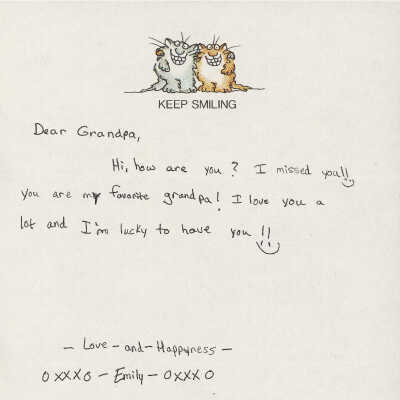 KEEP SMILING
Dear Grandpa,
Hi, how are you? I missed you!!
you are my favorite grandpa! I love you a
lot and I'm lucky to have you!!
- Love - and - Happyness -
OXXXO - Emily - OXXXO